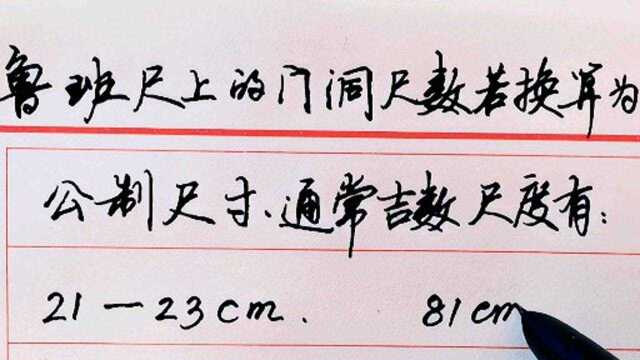 鲁班尺上的门洞尺数若换算为
公制尺寸、通常吉数尺度有:
21—23cm. 81cm